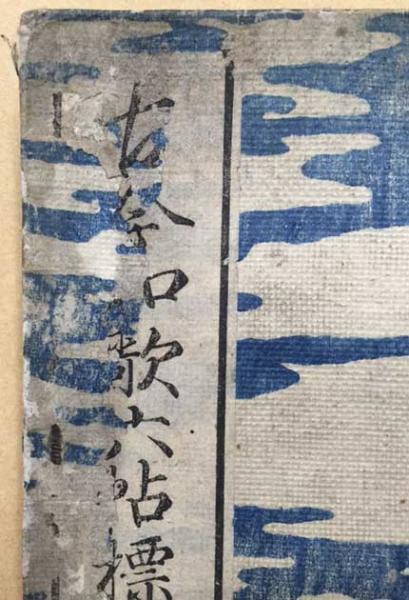 古今和歌六帖標